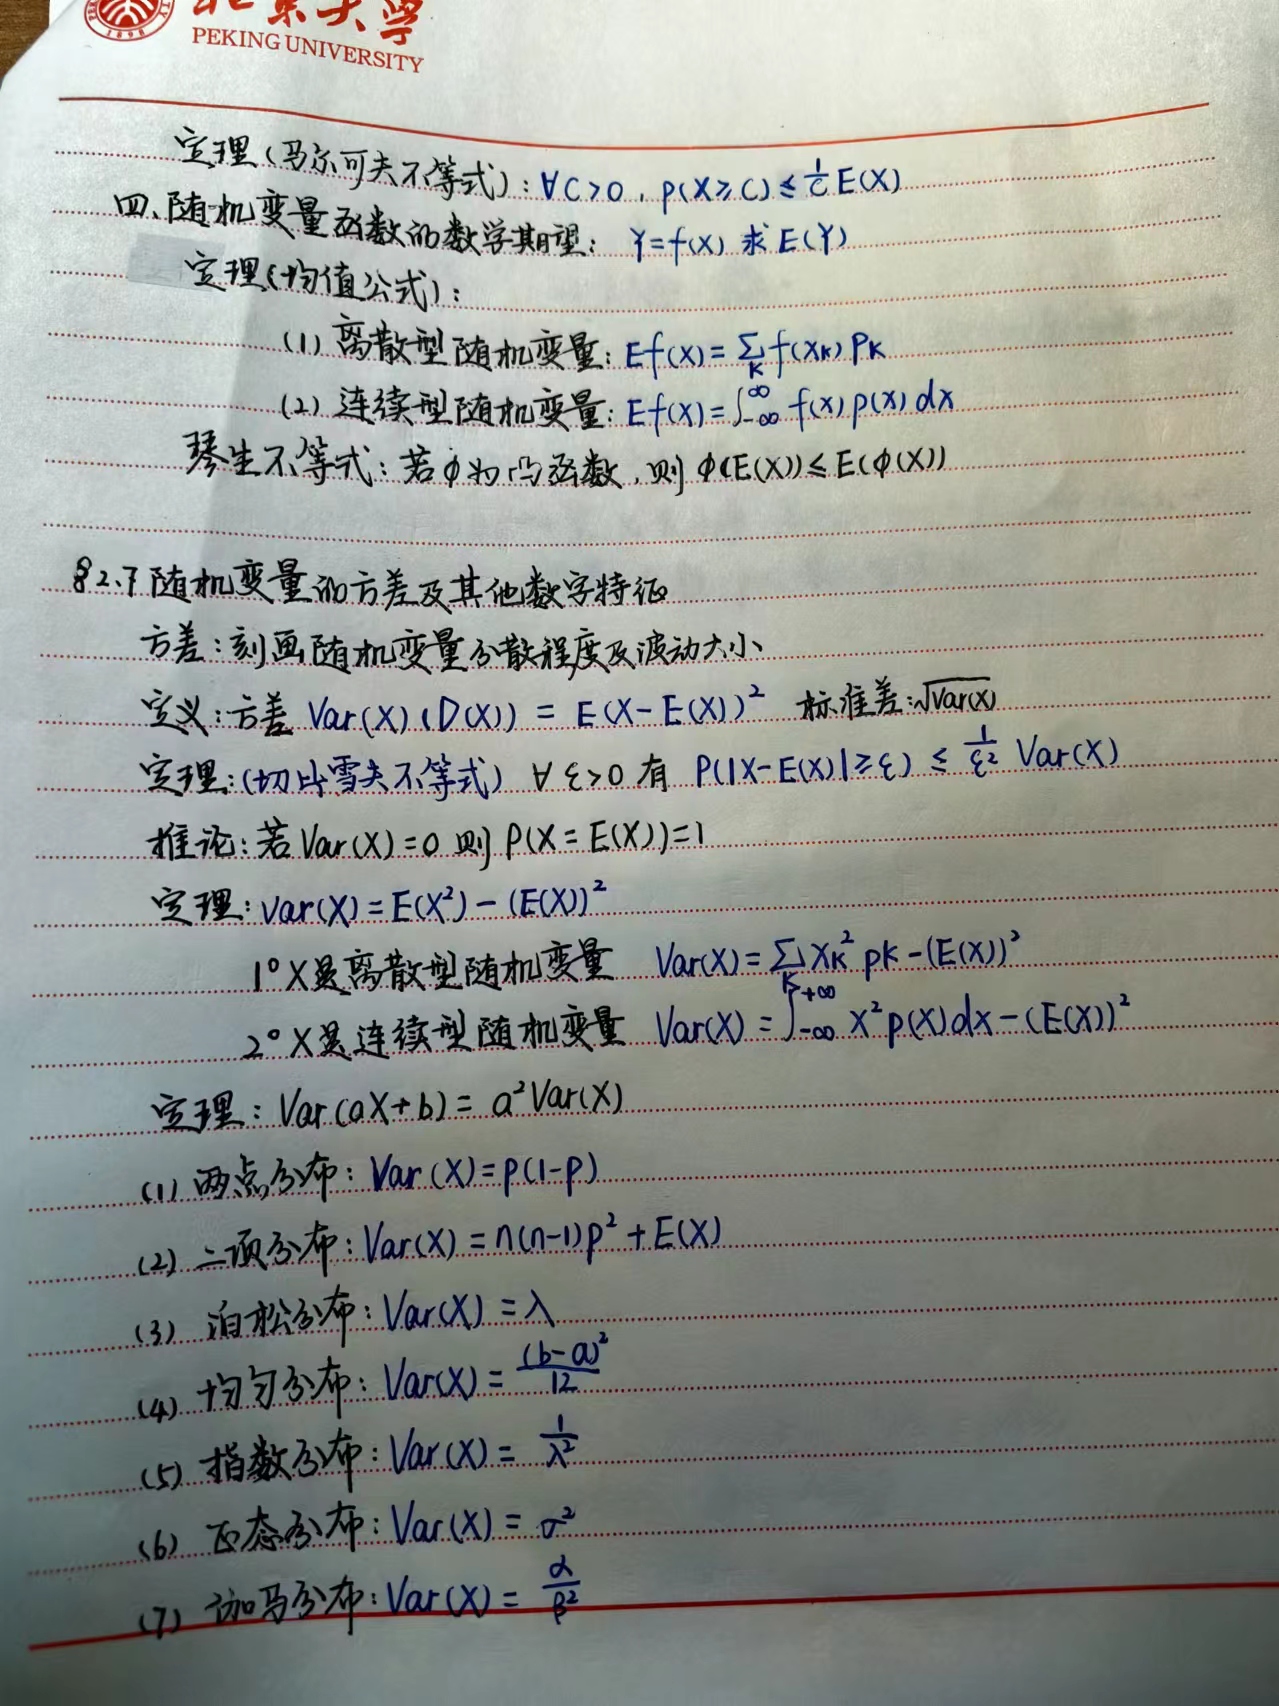 北京大学
PEKING UNIVERSITY
1898
定理(马尔可夫不等式):∀C>0,P(X≥C)≤\frac{1}{C}E(X)
四、随机变量函数的数学期望: Y=f(X) 求E(Y)
定理(均值公式):
(1) 离散型随机变量:Ef(X)=∑_K f(X_K) P_K
(2) 连续型随机变量:Ef(X)=∫_{-∞}^{∞} f(x)p(x)dx
琴生不等式:若φ为凸函数,则φ(E(X))≤E(φ(X))
§2.7 随机变量的方差及其他数字特征
方差:刻画随机变量分散程度及波动大小
定义:方差 Var(X)(D(X)) = E(X-E(X))² 标准差:√Var(X)
定理:(切比雪夫不等式) ∀ε>0 有 P(|X-E(X)|≥ε) ≤ \frac{1}{ε²} Var(X)
推论:若Var(X)=0 则 P(X=E(X))=1
定理:Var(X)=E(X²)-(E(X))²
1° X是离散型随机变量 Var(X)=∑_K X_K² p_K-(E(X))²
2° X是连续型随机变量 Var(X)=∫_{-∞}^{+∞} x²p(x)dx-(E(X))²
定理:Var(aX+b)=a²Var(X)
(1) 两点分布:Var(X)=p(1-p)
(2) 二项分布:Var(X)=n(n-1)p²+E(X)
(3) 泊松分布:Var(X)=λ
(4) 均匀分布:Var(X)=\frac{(b-a)²}{12}
(5) 指数分布:Var(X)=\frac{1}{λ²}
(6) 正态分布:Var(X)=σ²
(7) 伽马分布:Var(X)=\frac{α}{β²}